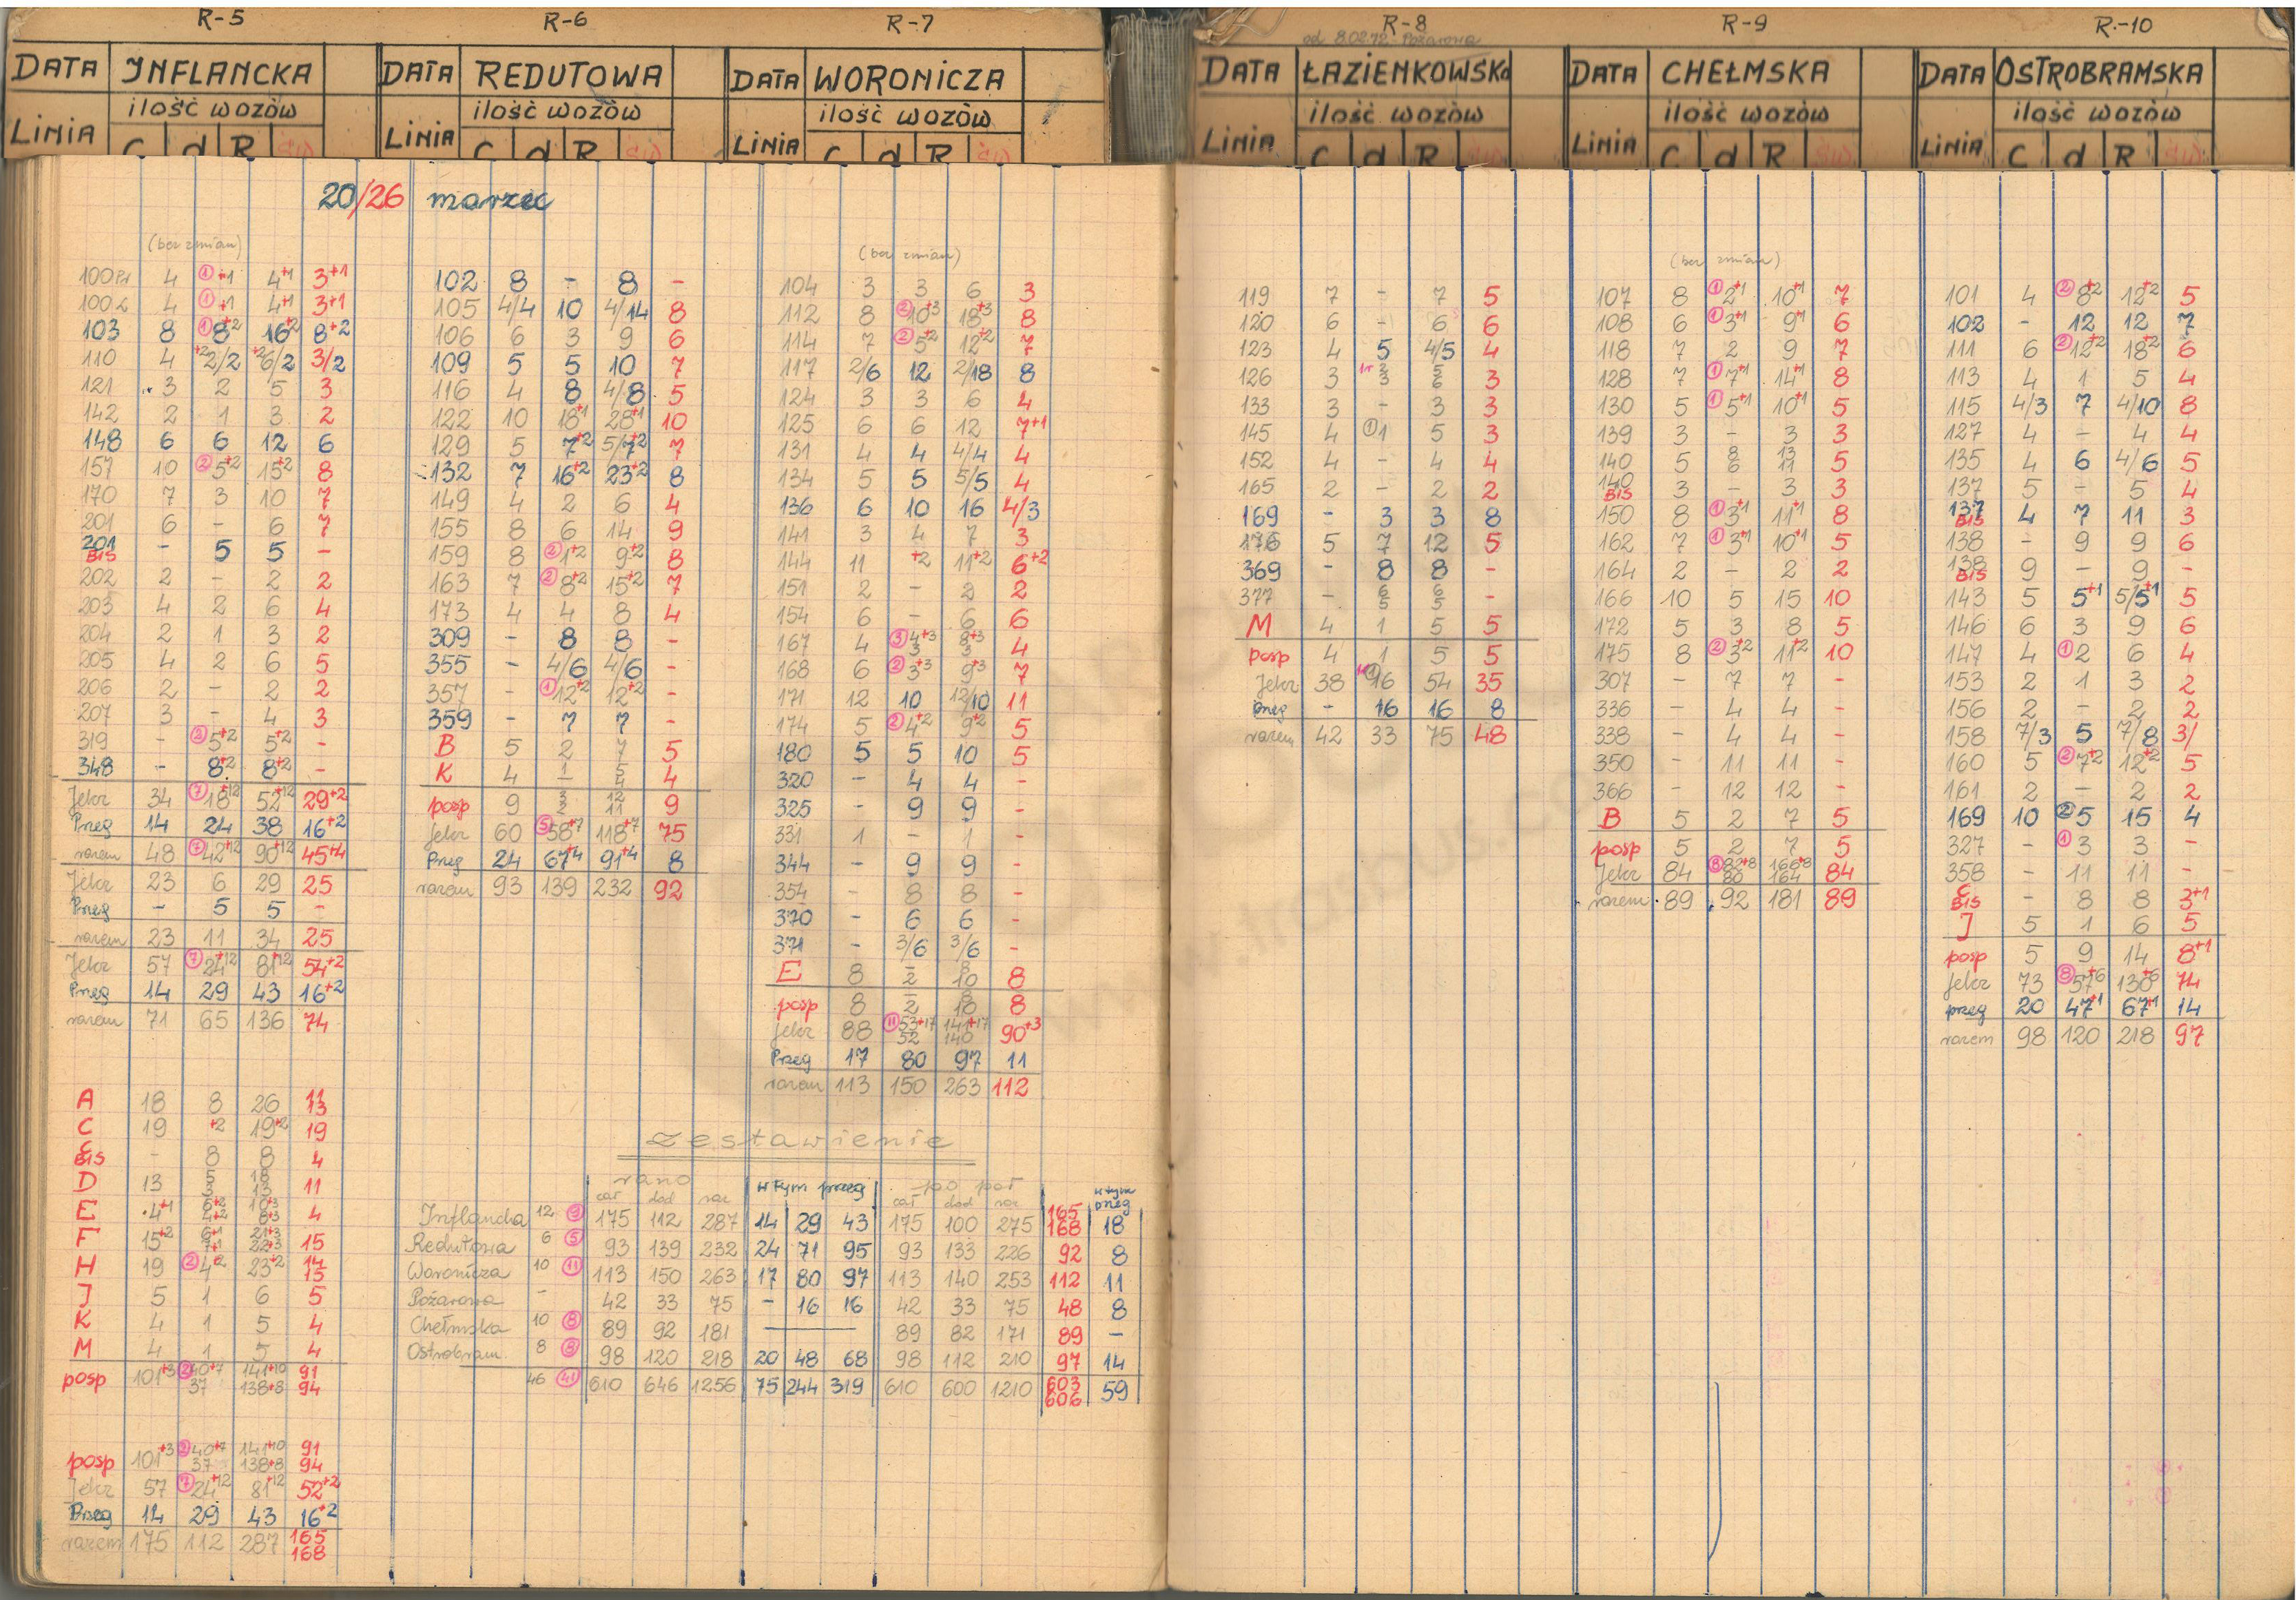 R-5
DATA INFLANCKA
ilość wozów
LINIA C d R św
20/26 marzec
(bez zmian)
100Pr 4 ① +1 4+1 3+1
100L 4 ① +1 4+1 3+1
103 8 ① 8+2 16+2 8+2
110 4 +2 2/2 +2 6/2 3/2
121 3 2 5 3
142 2 1 3 2
148 6 6 12 6
157 10 ② 5+2 15+2 8
170 7 3 10 7
201 6 - 6 7
201 BIS - 5 5 -
202 2 - 2 2
203 4 2 6 4
204 2 1 3 2
205 4 2 6 5
206 2 - 2 2
207 3 - 4 3
319 - ② 5+2 5+2 -
348 - 8+2 8+2 -
Jelcz 34 ⑦ 18+12 52+12 29+2
Przeg 14 24 38 16+2
razem 48 ⑦ 42+12 90+12 45+4
Jelcz 23 6 29 25
Przeg - 5 5 -
razem 23 11 34 25
Jelcz 57 ⑦ 24+12 81+12 54+2
Przeg 14 29 43 16+2
razem 71 65 136 74
A 18 8 26 11 13
C 19 +2 19+2 19
C BIS - 8 8 4
D 13 5 3 18 13 11
E 4+1 6+2 4+2 10+3 8+3 4
F 15+2 6+1 7+1 21+3 22+3 15
H 19 ② 4+2 23+2 14 15
J 5 1 6 5
K 4 1 5 4
M 4 1 5 4
posp 101+3 ② 40+7 37 141+10 138+8 91 94
posp 101+3 ② 40+7 37 141+10 138+8 91 94
Jelcz 57 ⑦ 24+12 81+12 52+2
Przeg 14 29 43 16+2
razem 175 112 287 165 168
R-6
DATA REDUTOWA
ilość wozów
LINIA C d R św
102 8 - 8 -
105 4/4 10 4/14 8
106 6 3 9 6
109 5 5 10 7
116 4 8 4/8 5
122 10 18+1 28+1 10
129 5 7+2 5/7+2 7
132 7 16+2 23+2 8
149 4 2 6 4
155 8 6 14 9
159 8 ② 1+2 9+2 8
163 7 ② 8+2 15+2 7
173 4 4 8 4
309 - 8 8 -
355 - 4/6 4/6 -
357 - ① 12+2 12+2 -
359 - 7 7 -
B 5 2 7 5
K 4 1 5 4 4
posp 9 3 2 12 11 9
Jelcz 60 ⑤ 58+7 118+7 75
Przeg 24 67+4 91+4 8
razem 93 139 232 92
R-7
DATA WORONICZA
ilość wozów
LINIA C d R św
(bez zmian)
104 3 3 6 3
112 8 ② 10+3 18+3 8
114 7 ② 5+2 12+2 7
117 2/6 12 2/18 8
124 3 3 6 4
125 6 6 12 7+1
131 4 4 4/4 4
134 5 5 5/5 4
136 6 10 16 4/3
141 3 4 7 3
144 11 +2 11+2 6+2
151 2 - 2 2
154 6 - 6 6
167 4 ③ 4+3 3 8+3 3 4
168 6 ② 3+3 9+3 7
171 12 10 12/10 11
174 5 ② 4+2 9+2 5
180 5 5 10 5
320 - 4 4 -
325 - 9 9 -
331 1 - 1 -
344 - 9 9 -
354 - 8 8 -
370 - 6 6 -
371 - 3/6 3/6 -
E 8 - 2 8 10 8
posp 8 - 2 8 10 8
Jelcz 88 ⑪ 53+17 52 141+17 140 90+3
Przeg 17 80 97 11
razem 113 150 263 112
zestawienie
rano w tym przeg po poł w tym przeg
cał dod raz cał dod raz
Inflancka 12 ⑨ 175 112 287 14 29 43 175 100 275 165 168 18
Redutowa 6 ⑤ 93 139 232 24 71 95 93 133 226 92 8
Woronicza 10 ⑪ 113 150 263 17 80 97 113 140 253 112 11
Pożarowa - 42 33 75 - 16 16 42 33 75 48 8
Chełmska 10 ⑧ 89 92 181 — 89 82 171 89 -
Ostrobram. 8 ⑧ 98 120 218 20 48 68 98 112 210 97 14
46 ㊶ 610 646 1256 75 244 319 610 600 1210 603 606 59
R-8
od 8.02.72 - Pożarowa
DATA ŁAZIENKOWSKa
ilość wozów
LINIA C d R św
119 7 - 7 5
120 6 - 6 6
123 4 5 4/5 4
126 3 2 3 5 6 3
133 3 - 3 3
145 4 ① 1 5 3
152 4 - 4 4
165 2 - 2 2
169 - 3 3 8
176 5 7 12 5
369 - 8 8 -
377 - 6 5 6 5 -
M 4 1 5 5
posp 4 1 5 5
Jelcz 38 16 54 35
Przeg - 16 16 8
razem 42 33 75 48
R-9
DATA CHEŁMSKA
ilość wozów
LINIA C d R św
(bez zmian)
107 8 ① 2+1 10+1 7
108 6 ① 3+1 9+1 6
118 7 2 9 7
128 7 ① 7+1 14+1 8
130 5 ① 5+1 10+1 5
139 3 - 3 3
140 5 8 6 13 11 5
140 BIS 3 - 3 3
150 8 ① 3+1 11+1 8
162 7 ① 3+1 10+1 5
164 2 - 2 2
166 10 5 15 10
172 5 3 8 5
175 8 ② 3+2 11+2 10
307 - 7 7 -
336 - 4 4 -
338 - 4 4 -
350 - 11 11 -
366 - 12 12 -
B 5 2 7 5
posp 5 2 7 5
Jelcz 84 ⑧ 82+8 80 166+8 164 84
razem 89 92 181 89
R.-10
DATA OSTROBRAMSKA
ilość wozów
LINIA C d R św
101 4 ② 8+2 12+2 5
102 - 12 12 7
111 6 ② 12+2 18+2 6
113 4 1 5 4
115 4/3 7 4/10 8
127 4 - 4 4
135 4 6 4/6 5
137 5 - 5 4
137 BIS 4 7 11 3
138 - 9 9 6
138 BIS 9 - 9 -
143 5 5+1 5/5+1 5
146 6 3 9 6
147 4 ① 2 6 4
153 2 1 3 2
156 2 - 2 2
158 7/3 5 7/8 3/
160 5 ② 7+2 12+2 5
161 2 - 2 2
169 10 ② 5 15 4
327 - ① 3 3 -
358 - 11 11 -
C BIS - 8 8 3+1
J 5 1 6 5
posp 5 9 14 8+1
Jelcz 73 ⑧ 57+6 130+6 74
przeg 20 47+1 67+1 14
razem 98 120 218 97